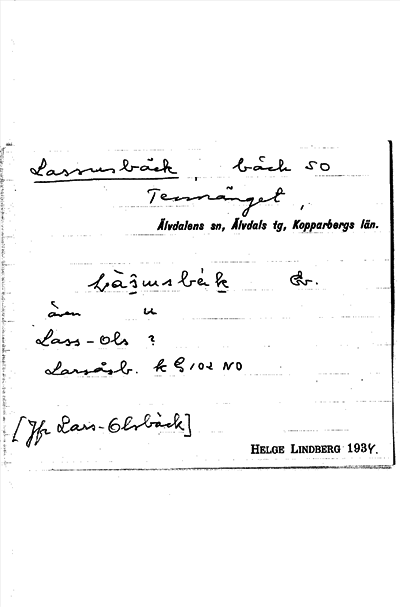 Lassusbäck, bäck SO
Tennänget,
Älvdalens sn, Älvdals tg, Kopparbergs län.
även u
Lass-Ols ?
Larsåsb. k G 102 NO
[Jfr Lars-Olsbäck]
HELGE LINDBERG 1934.